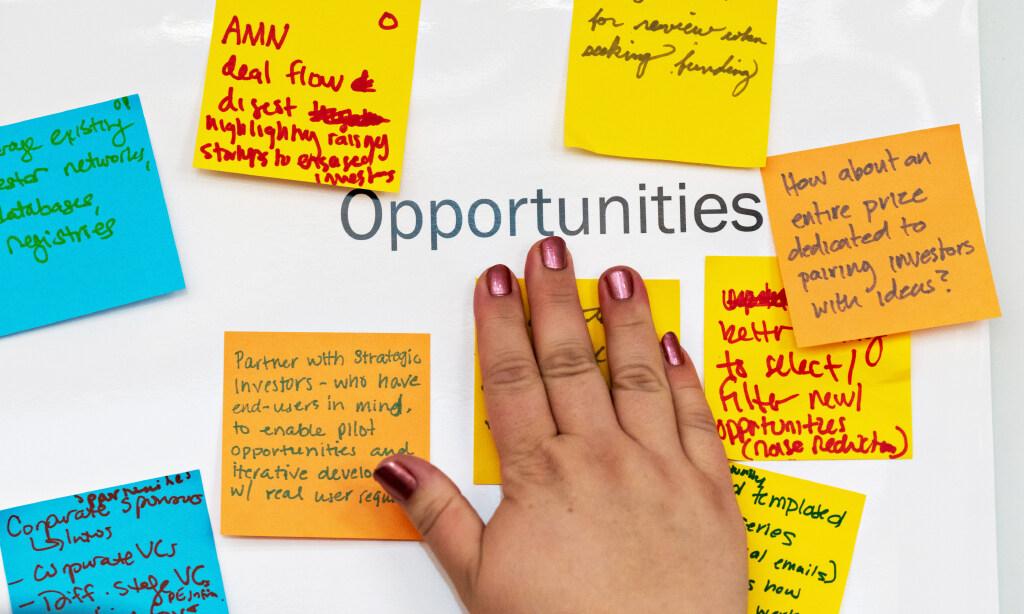 AMN
deal flow &
digest
highlighting raising
startups to engaged
investors
for review when
seeking funding
existing
networks,
databases,
registries
Opportunities
How about an
entire prize
dedicated to
pairing investors
with ideas?
better
to select/
filter new/
opportunities
(noise reduction)
Partner with Strategic
Investors - who have
end-users in mind,
to enable pilot
opportunities and
iterative develo
w/ real user requ
Corporate Sponsors
↳ Intros
- Corporate VCs
- Diff. stage VCs
templated
series
emails)
now